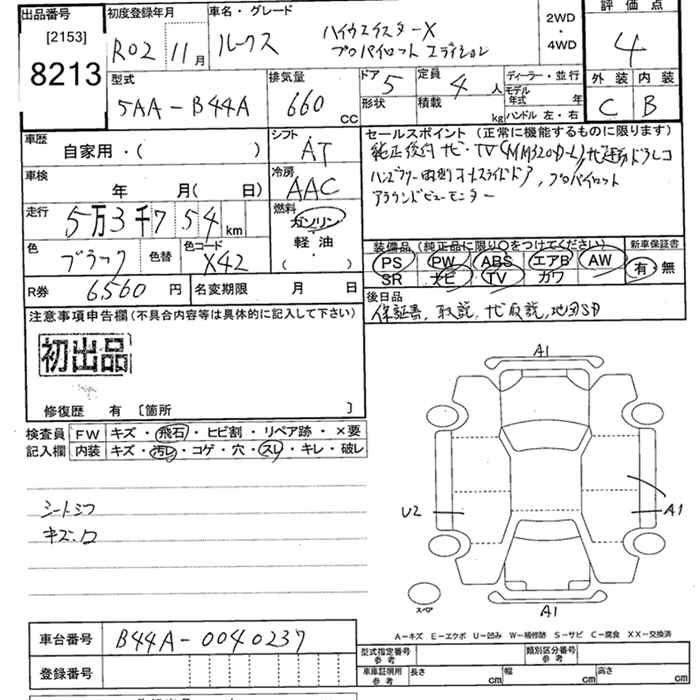 出品番号
[2153]
8213
初度登録年月
R02 11月
車名・グレード
ルークス
ハイウェイスターX
プロパイロット エディション
2WD
・
4WD
評価点
4
外装 内装
C B
型式
5AA-B44A
排気量
660 CC
ドア 5
定員 4 人
形状
積載 kg
ディーラー・並行
モデル年式 年
ハンドル 左・右
車歴
自家用・( )
シフト
AT
車検
年 月( 日)
冷房
AAC
走行
5万3千754 km
燃料
ガソリン
・
軽油
( ・ )
色
ブラック
色替
色コード
X42
R券 6,560 円
名変期限 月 日
セールスポイント(正常に機能するものに限ります)
純正後付ナビ・TV(MM320D-L)
ハンズフリー両側オートスライドドア, プロパイロット
アラウンドビューモニター
装備品(純正品に限り○をつけてください)
PS PW ABS エアB AW
SR ナビ TV カワ
新車保証書
有・無
後日品
保証書, 取説, ナビ取説, 地図SD
注意事項申告欄(不具合内容等は具体的に記入して下さい)
初出品
修復歴 有 〔箇所 〕
検査員記入欄
FW キズ・飛石・ヒビ割・リペア跡・×要
内装 キズ・汚レ・コゲ・穴・スレ・キレ・破レ
シートシワ
キズ.ロ
A1
U2
A1
A1
スペア
A-キズ E-エクボ U-凹み W-補修跡 S-サビ C-腐食 XX-交換済
車台番号 B44A-0040237
登録番号
型式指定番号 参考
類別区分番号 参考
車庫証明用 参考
長さ cm
幅 cm
高さ cm